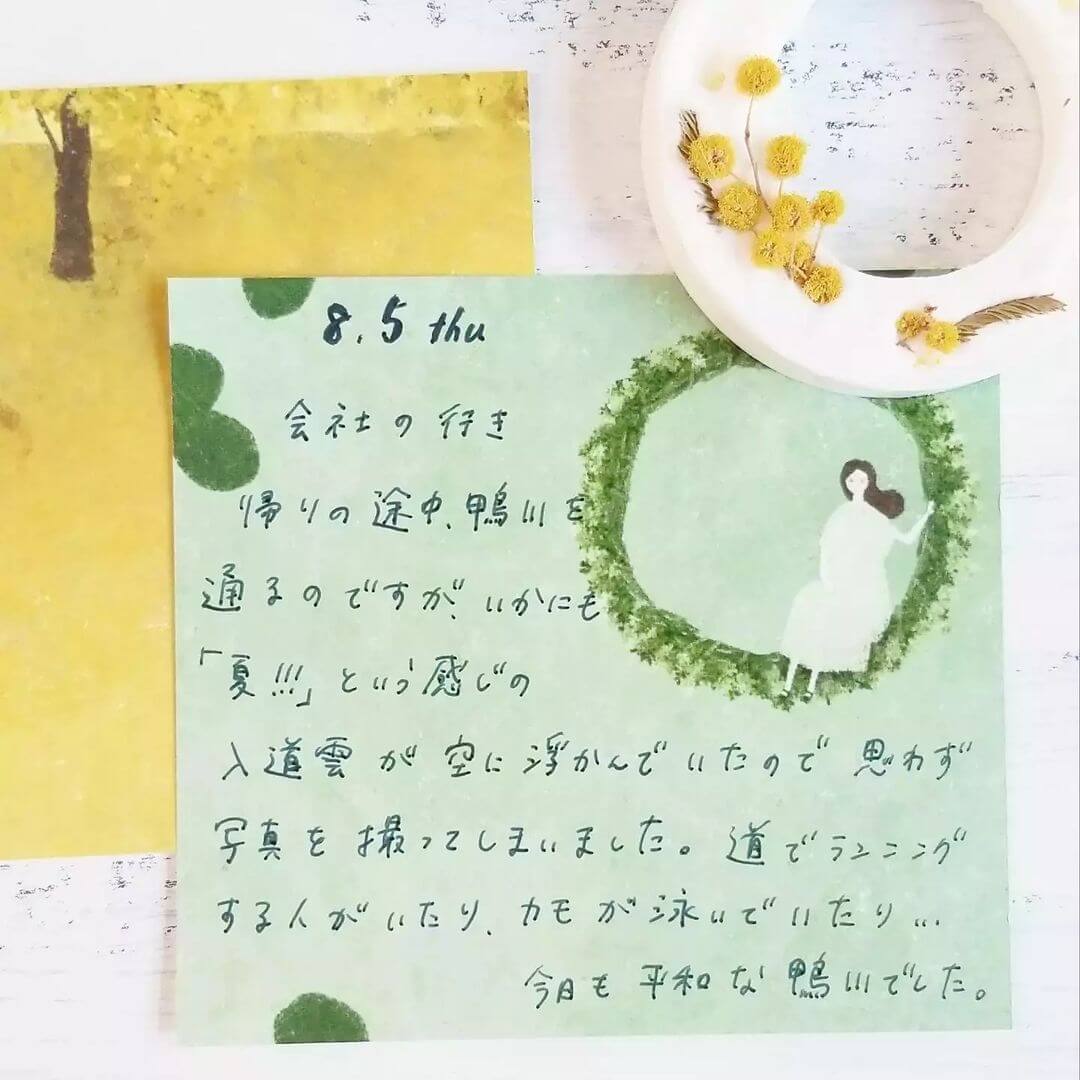 8.5 thu
会社の行き
帰りの途中、鴨川を
通るのですが、いかにも
「夏!!!」という感じの
入道雲が空に浮かんでいたので思わず
写真を撮ってしまいました。道でランニング
する人がいたり、カモが泳いでいたり…
今日も平和な鴨川でした。